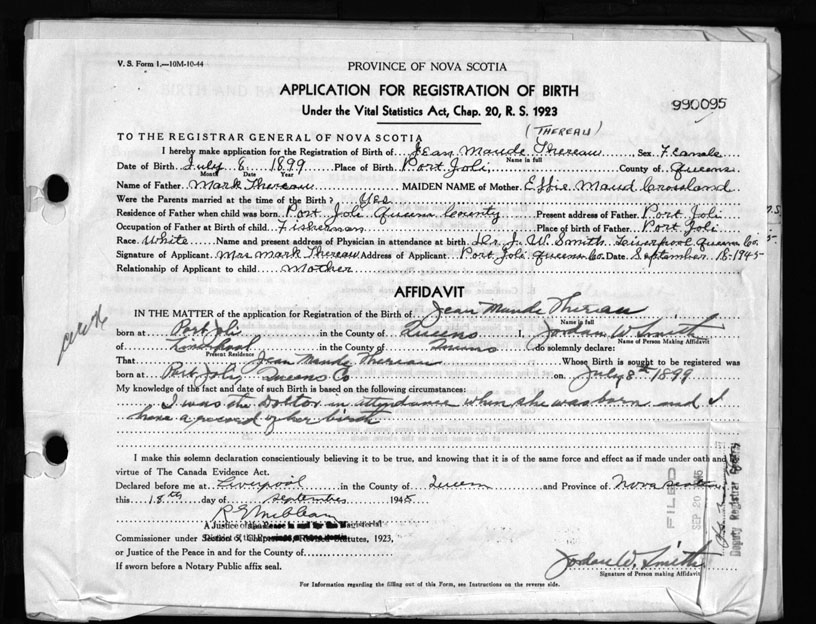 V. S. Form 1.—10M-10-44
PROVINCE OF NOVA SCOTIA
APPLICATION FOR REGISTRATION OF BIRTH
Under the Vital Statistics Act, Chap. 20, R. S. 1923
990095
(THEREAU)
TO THE REGISTRAR GENERAL OF NOVA SCOTIA
I hereby make application for the Registration of Birth of Jean Maude Thereau Sex Female
Name in full
Date of Birth July 8 1899 Place of Birth Port Joli County of Queens
Month Date Year
Name of Father Mark Thereau MAIDEN NAME of Mother Effie Maud Crossland
Were the Parents married at the time of the Birth? Yes
Residence of Father when child was born Port Joli Queens County Present address of Father Port Joli
Occupation of Father at Birth of child Fisherman Place of birth of Father Port Joli
Race White Name and present address of Physician in attendance at birth Dr. J. W. Smith Liverpool Queens Co.
Signature of Applicant Mrs Mark Thereau Address of Applicant Port Joli Queens Co. Date September 18-1945
Relationship of Applicant to child Mother
AFFIDAVIT
IN THE MATTER of the application for Registration of the Birth of Jean Maude Thereau
Name in full
born at Port Joli in the County of Queens I, Jordan W. Smith
Name of Person Making Affidavit
of Liverpool in the County of Queens do solemnly declare:
Present Residence
That Jean Maude Thereau Whose Birth is sought to be registered was
born at Port Joli Queens Co on July 8th 1899
My knowledge of the fact and date of such Birth is based on the following circumstances:
I was the Doctor in attendance when she was born and I
have a record of her birth
I make this solemn declaration conscientiously believing it to be true, and knowing that it is of the same force and effect as if made under oath and by
virtue of The Canada Evidence Act.
Declared before me at Liverpool in the County of Queens and Province of Nova Scotia
this 18th day of September 1945
A Justice of the
Commissioner under Statutes, 1923,
or Justice of the Peace in and for the County of
If sworn before a Notary Public affix seal.
Jordan W. Smith
Signature of Person making Affidavit
For Information regarding the filling out of this Form, see Instructions on the reverse side.
FILED
SEP 20
Deputy Registrar General